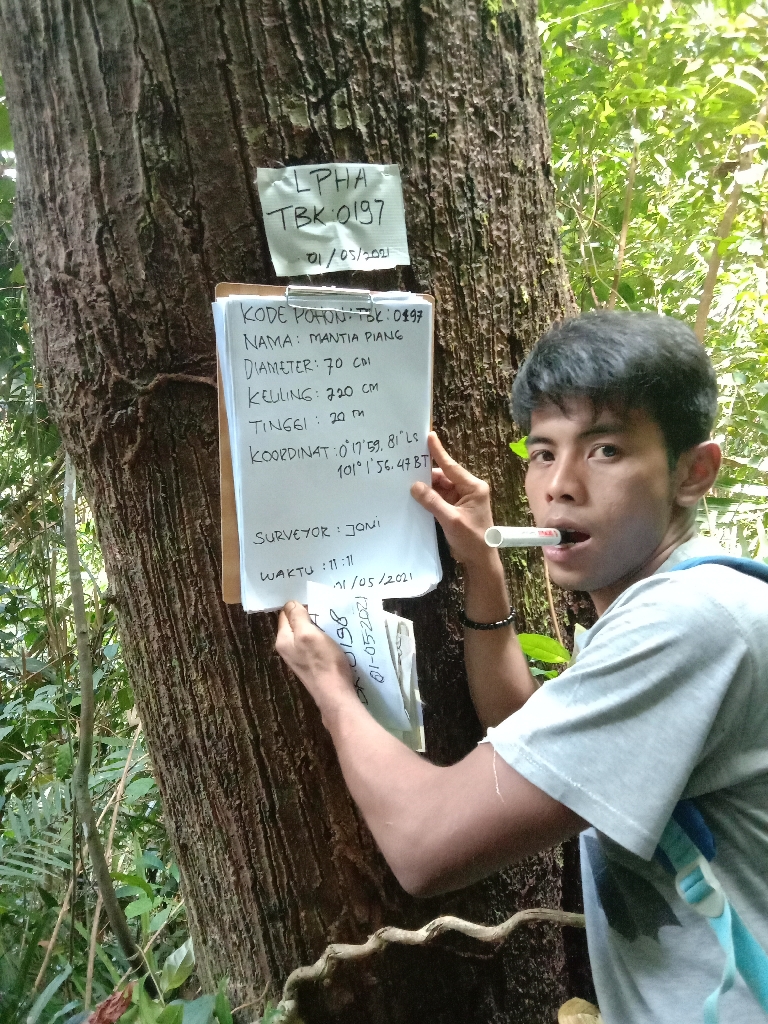 LPHA
TBK:0197
01/05/2021
KODE POHON: TBK: 0197
NAMA: MANTIA PIANG
DIAMETER: 70 CM
KELILING: 220 CM
TINGGI: 20 M
KOORDINAT: 0°17'59,81" LS
101°1'56.47 BT
SURVEYOR: JONI
WAKTU: 11:11
01/05/2021
0198
01-05-2021